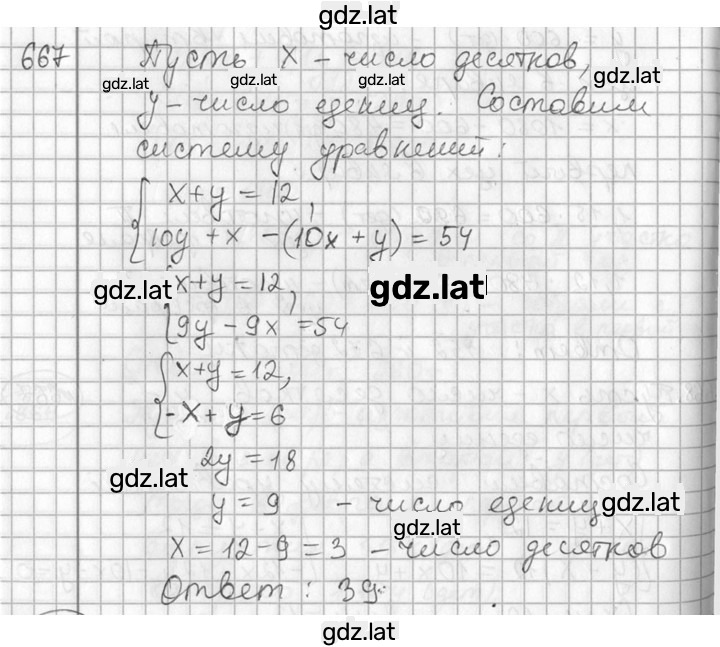 gdz.lat
667 Пусть x – число десятков,
gdz.lat gdz.lat gdz.lat
y – число едениц. Составим
систему уравнений:
{ x + y = 12,
10y + x – (10x + y) = 54
{ x + y = 12,
gdz.lat gdz.lat
9y – 9x = 54
{ x + y = 12,
-x + y = 6
2y = 18
gdz.lat
y = 9 – число едениц
gdz.lat
gdz.lat
x = 12 – 9 = 3 – число десятков
Ответ: 39.
gdz.lat